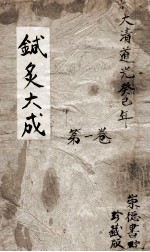 大清道光癸巳年
鍼炙大成
第一巻
崇德書貯
珍藏版